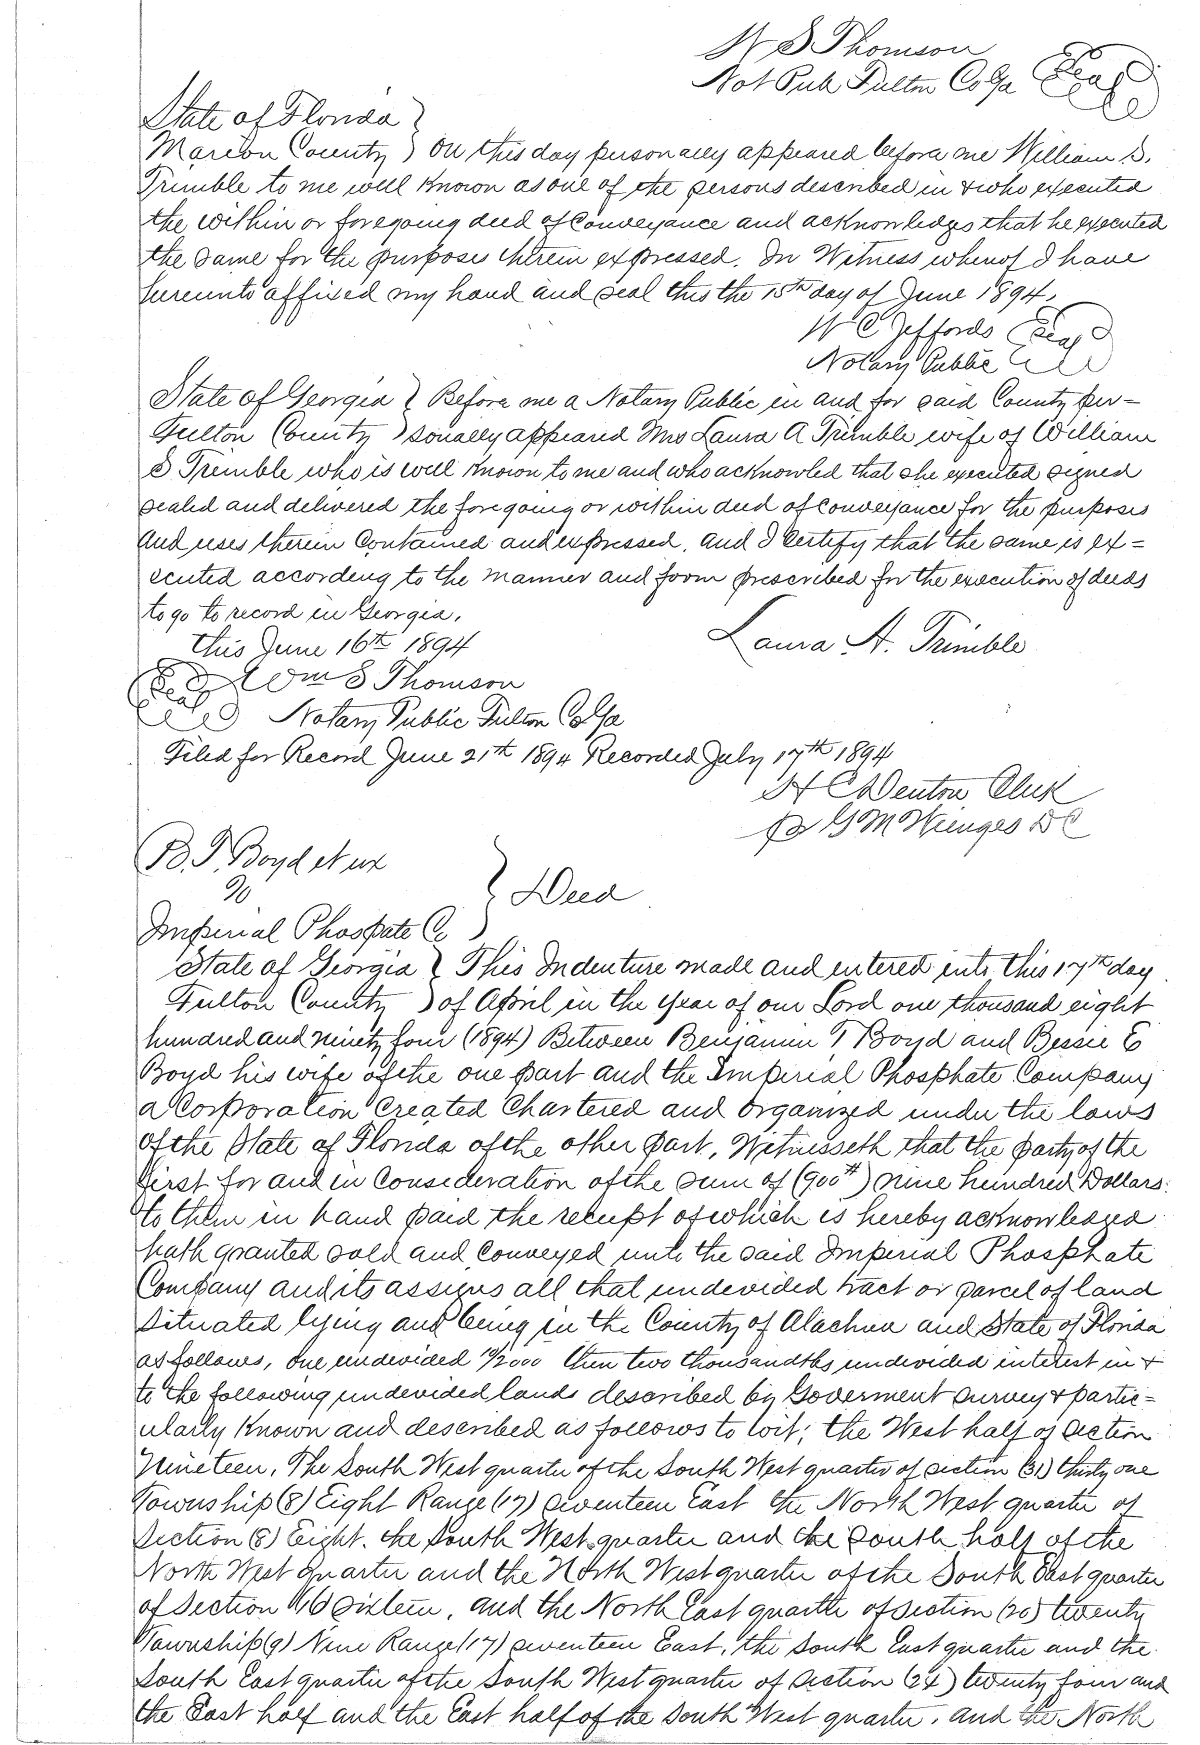 W S Thomson
Not Pub Fulton Co Ga Seal
State of Florida }
Marion County } On this day personally appeared before me William S.
Trimble to me well known as one of the persons described in & who executed
the within or foregoing deed of Conveyance and acknowledges that he executed
the same for the purposes therein expressed. In Witness whereof I have
hereunto affixed my hand and seal this the 15th day of June 1894.
W C Jeffords Seal
Notary Public
State of Georgia } Before me a Notary Public in and for said County per=
Fulton County } sonally appeared Mrs Laura A Trimble wife of William
S Trimble who is well known to me and who acknowled that she executed signed
sealed and delivered the foregoing or within deed of conveyance for the purposes
and uses therein contained and expressed. and I certify that the same is ex=
ecuted according to the manner and form prescribed for the execution of deeds
to go to record in Georgia.
this June 16th 1894
Laura A. Trimble
Seal Wm S Thomson
Notary Public Fulton Co Ga
Filed for Record June 21st 1894 Recorded July 17th 1894
H C Denton Clerk
GM Wienges DC
B. T. Boyd et ux
To } Deed
Imperial Phospate Co
State of Georgia } This Indenture made and entered into this 17th day
Fulton County } of April in the year of our Lord one thousand eight
hundred and ninety four (1894) Between Benjamin T Boyd and Bessie E
Boyd his wife of the one part and the Imperial Phosphate Company
a Corporation Created Chartered and organized under the laws
of the State of Florida of the other part, Witnesseth that the party of the
first for and in consideration of the sum of (900#) nine hundred Dollars
to them in hand paid the receipt of which is hereby acknowledged
hath granted sold and conveyed unto the said Imperial Phosphate
Company and its assigns all that undevided tract or parcel of land
situated lying and being in the County of Alachua and State of Florida
as follows, one undevided 10/2000 then two thousandths undevided interest in &
to the following undevided lands described by Goverment survey & partic=
ularly known and described as follows to wit; the West half of section
Nineteen, The South West quarter of the South West quarter of section (31) thirty one
Township (8) Eight Range (17) seventeen East the North West quarter of
section (8) Eight. the South West quarter and the South half of the
North West quarter and the North West quarter of the South East quarter
of Section 16 sixteen, and the North East quarter of section (20) twenty
Township (9) Nine Range (17) seventeen East, the South East quarter and the
South East quarter of the South West quarter of section (24) twenty four and
the East half and the East half of the South West quarter, and the North